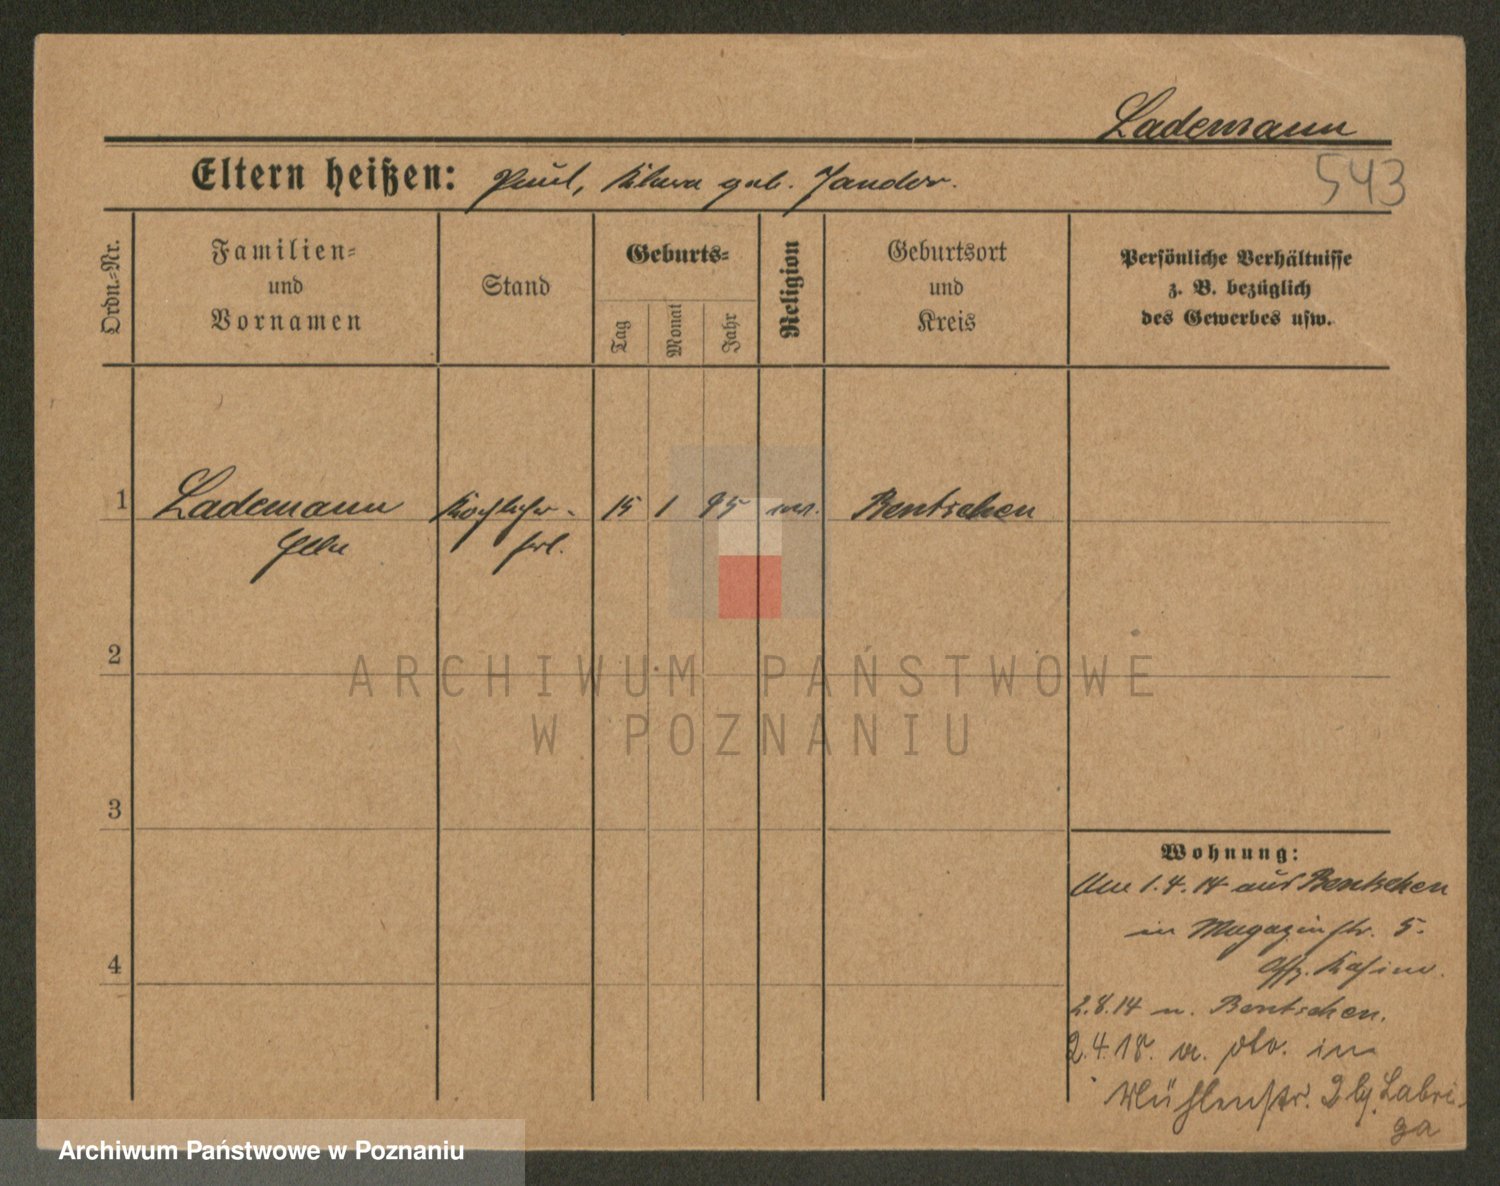 Lademann
Eltern heißen: Paul, Klara geb. Jander.
543
Ordn.-Nr.
Familien-
und
Vornamen
Stand
Geburts-
Tag
Monat
Jahr
Religion
Geburtsort
und
Kreis
Persönliche Verhältnisse
z. B. bezüglich
des Gewerbes usw.
1 Lademann Kochlehr- 15 1 95 ev. Bentschen
Ella frl.
2
3
4
Wohnung:
Am 1.4.14 aus Bentschen
in Magazinstr. 5.
Offz. Kasino.
2.8.14 n. Bentschen.
2.4.18. v. dto. in
Mühlenstr. 2 bj. Labri-
ga
ARCHIWUM PAŃSTWOWE
W POZNANIU
Archiwum Państwowe w Poznaniu